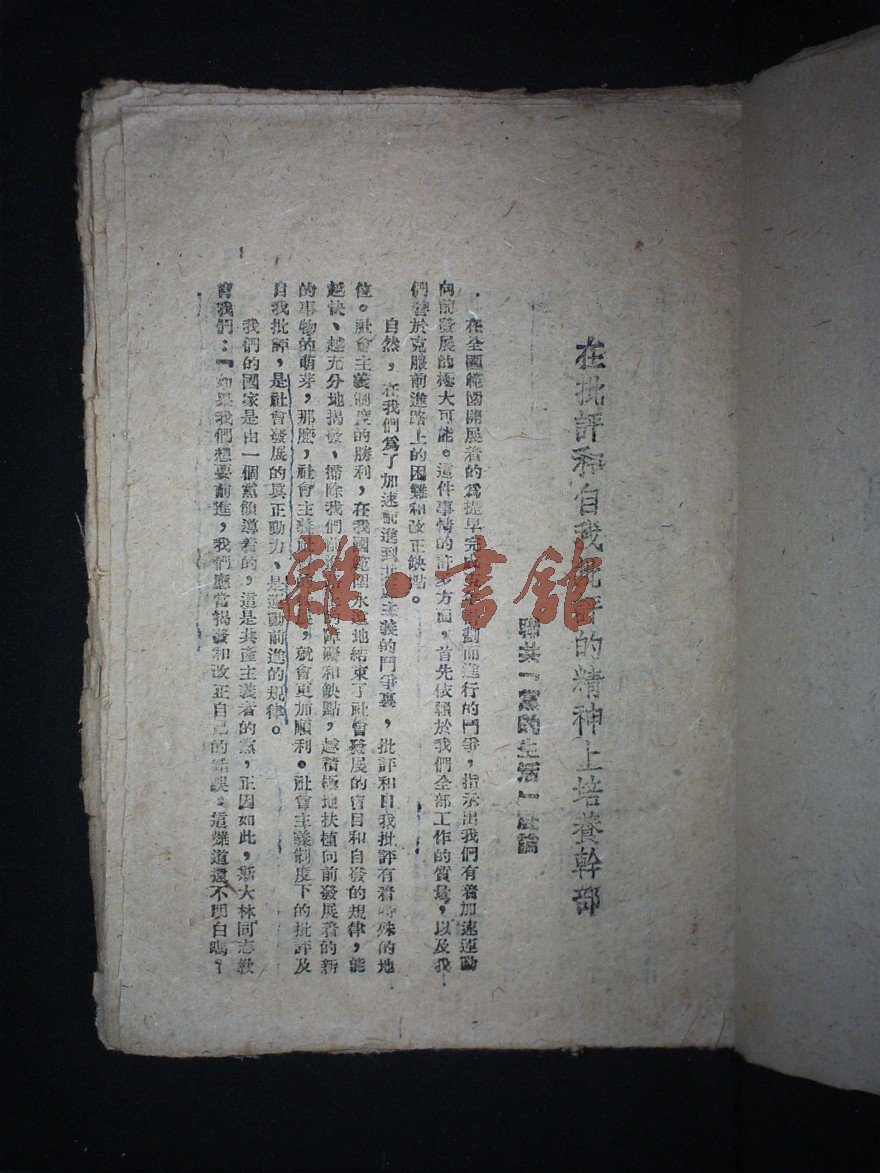 在批評和自我批評的精神上培養幹部
聯共「黨的生活」社論
在全國範圍開展着的爲提早完成五年計劃而進行的鬥爭，指示出我們有着加速運動
向前發展的極大可能。這件事情的許多方面，首先依賴於我們全部工作的質量，以及我
們善於克服前進路上的困難和改正缺點。
自然，在我們爲了加速前進到共產主義的鬥爭裏，批評和自我批評有着特殊的地
位。社會主義制度的勝利，在我國範圍永遠地結束了社會發展的盲目和自發的規律，能
越快、越充分地揭發、掃除我們前進的障礙和缺點，越積極地扶植向前發展着的新
的事物的萌芽，那麽，社會主義，就會更加順利。社會主義制度下的批評及
自我批評，是社會發展的真正動力、是運動前進的規律。
我們的國家是由一個黨領導着的，這是共產主義者的黨，正因如此，斯大林同志敎
育我們：「如果我們想要前進，我們應當揭發和改正自己的錯誤。這難道還不明白嗎？
雜·書館